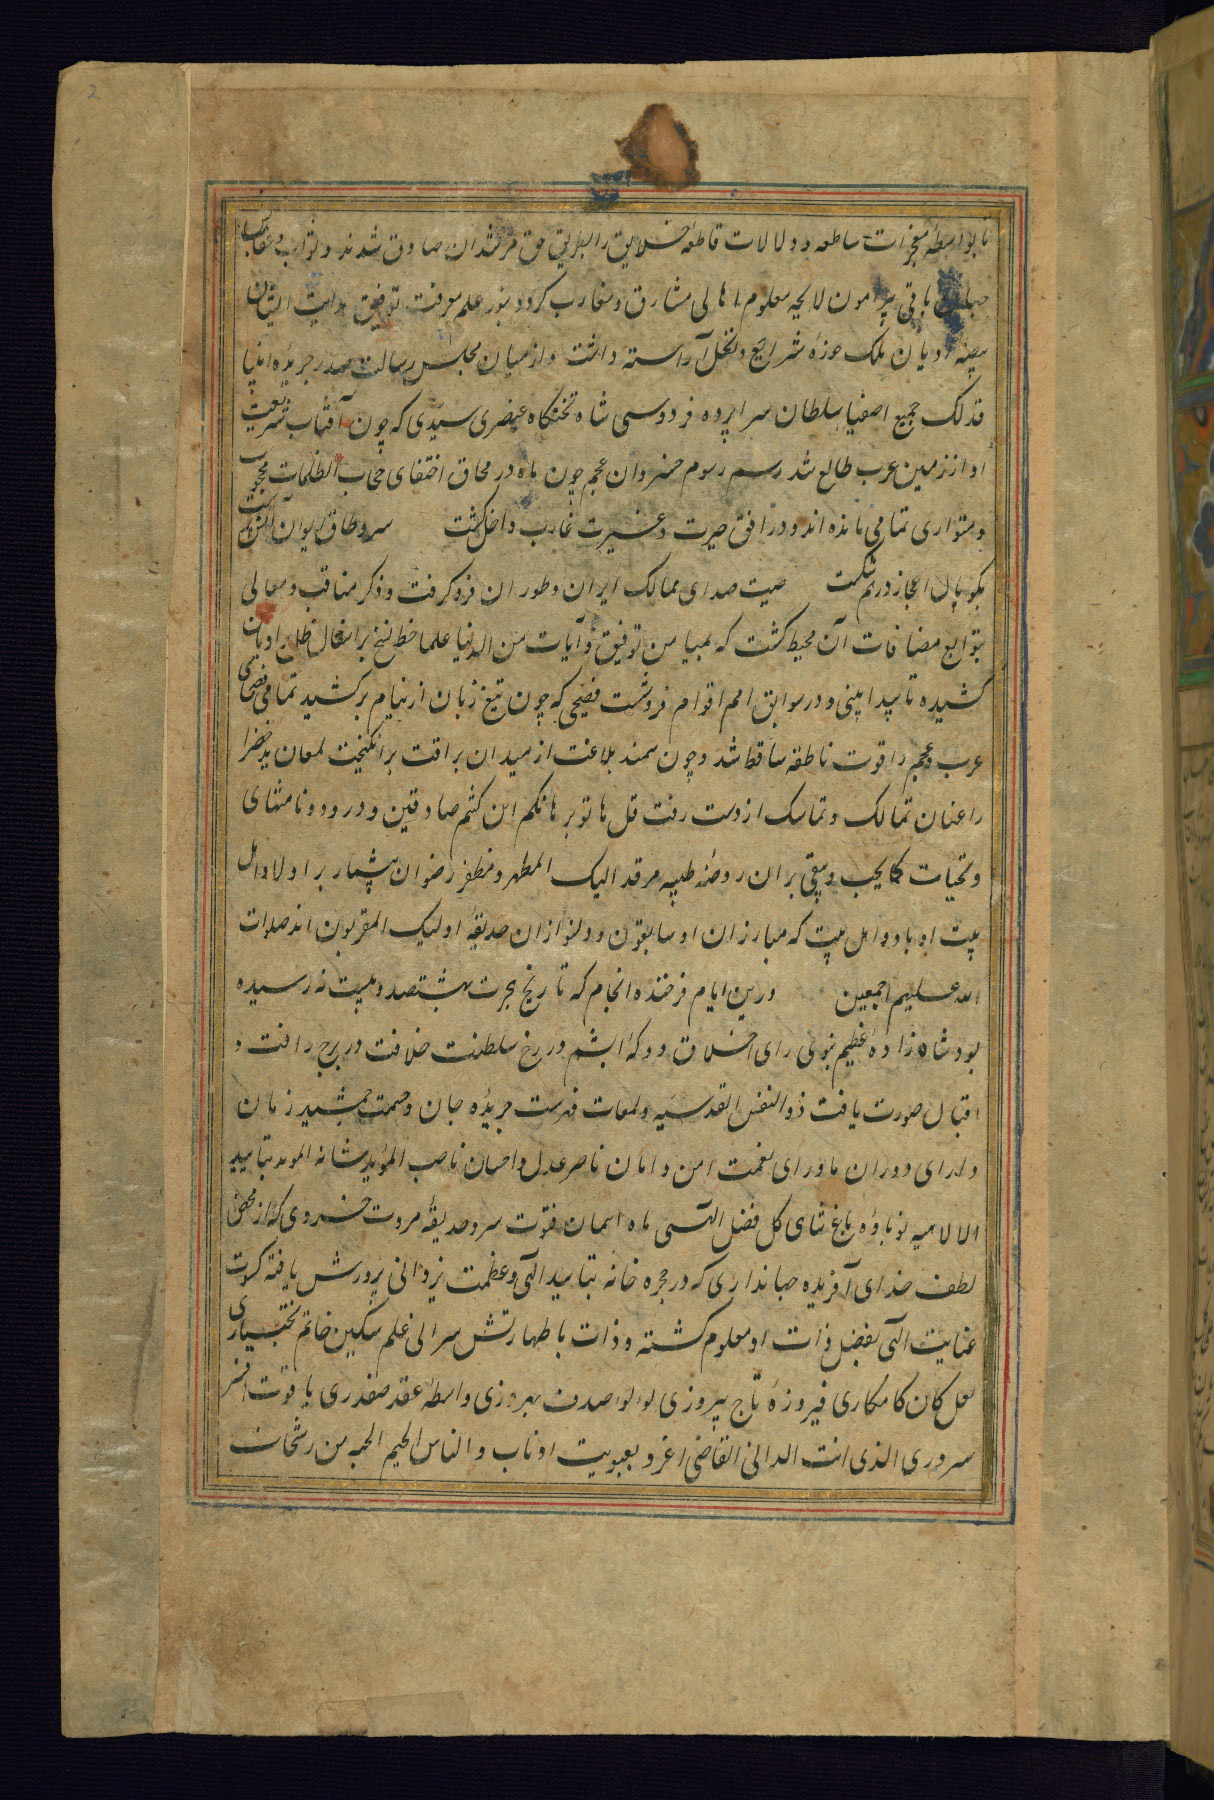 2
تا بواسطهٔ معجزات ساطعه و دلالات قاطعه خلایق را بطریق حق مرشدان صادق شدند و ثواب و عقاب
باقی پیرامون لایحه معلوم اهالی مشارق و مغارب کرد و بنور علم معرفت توفیق هدایت ایشان
بیضه ادیان ملک حوزهٔ شرایع و نحل آراسته داشت و از میان مجلس رسالت صدر جریدهٔ انبیا
فذلک جمیع اصفیا سلطان سراپرده فردوسی شاه تختگاه عنصری سیدی که چون آفتاب شریعت
او از زمین عرب طالع شد رسم رسوم خسروان عجم چون ماه در محاق اختفای حجاب الظلمات محجوب
و متواری تمامی مانده اند و در افق حیرت و غیرت غارب و داخل گشت سر و طاق ایوان
بکوپال اعجاز در هم شکست صیت صدای ممالک ایران و طوران فرو کرفت و ذکر مناقب و معالی
بتوابع مضافات آن محیط کشت که بمیامن توفیق و آیات من الدنیا علما خط نسخ بر ادیان
کشیده تا پیدا بینی و در سوابق امم اقوام فصیحی که چون تیغ زبان از نیام برکشید تمامی فصحای
عرب و عجم را قوت ناطقه ساقط شد و چون سمند بلاغت از میدان براقت برانکیخت لمعان ید بیضا
را عنان تمالک و تماسک از دست رفت قل هاتو برهانکم ان کنتم صادقین و درود و نامنتهای
و تحیات کما یحب و یبقی بران روضهٔ طیبه مرقد الیک المطهر و مظفر رضوان بیشمار بر اولاد اهل
بیت او باد و اهل بیت که مبارزان او سابقون و دلنوازان حدیقهٔ اولیک المقربون اند صلوات
الله علیهم اجمعین درین ایام فرخنده انجام که تاریخ هجرت بهشتصد و بیست نه رسیده
بود شاه زادهٔ عظیم در رخ سلطنت خلافت در برج رافت و
اقبال صورت یافت ذو النفس القدسیه و لمعات فهرست جریدهٔ جان و حمت جمشید زمان
دارای دوران ماورای نعمت امن و امان ناصر عدل و احسان ناصب المؤید شانه الموید بتایید
الا لاهیه نوباوهٔ باغ ثنای کل فضل الهی ماه آسمان فتوت سرو حدیقهٔ مروت خسروی که از محض
لطف خدای آفریده جهانداری که در حجره خانهٔ بتایید الهی و عظمت یزدانی پرورش یافته کسوت
عنایت الهی بفضل ذات او معلوم کشته و ذات با طهارتش سرالی علم نکین خاتم بختیاری
لعل کان کامکاری فیروزهٔ تاج پیروزی لولو صدف بهروزی واسطهٔ عقد صفدری یاقوت افسر
سروری الذی انت الدانی القاضی اغر و بعبوبیت اوناب و الناس الجیم الجمه من رشحات